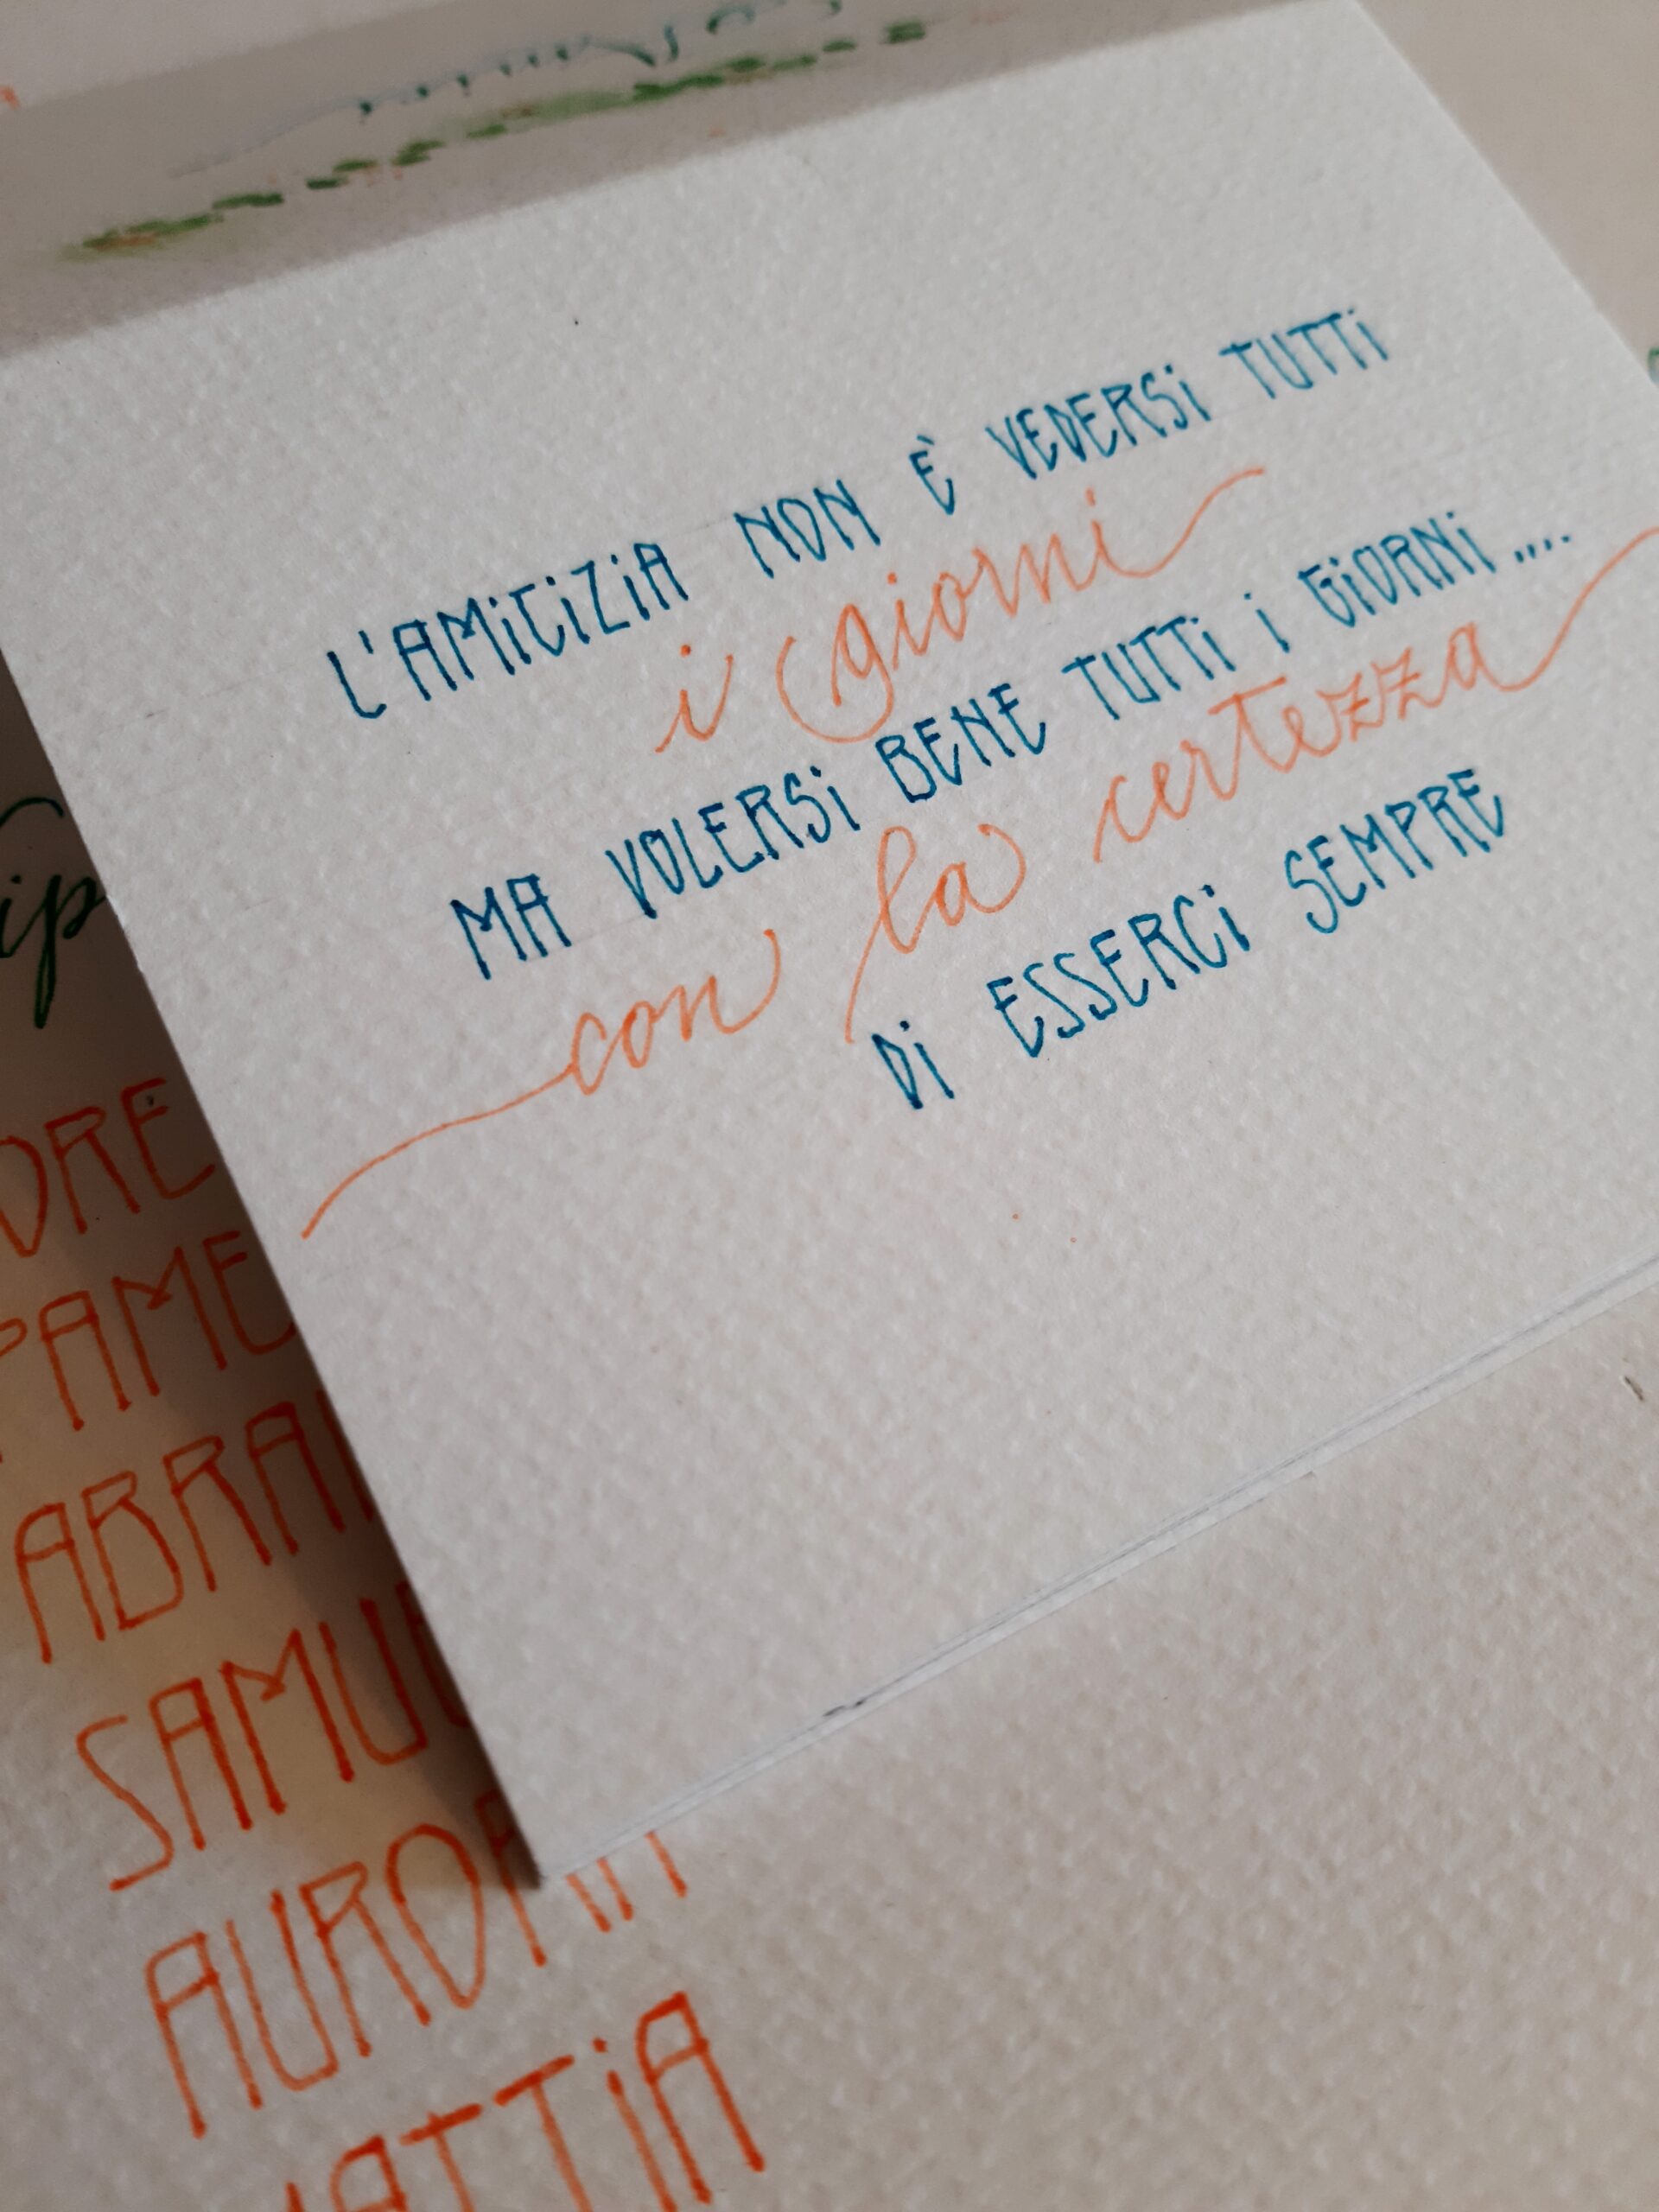 L'AMiCiZiA NON È VEDERSi TUTTi
i giorni
MA VOLERSi BENE TUTTi i GiORNi....
con la certezza
Di ESSERCi SEMPRE
SAMU
AURORA
MATTiA